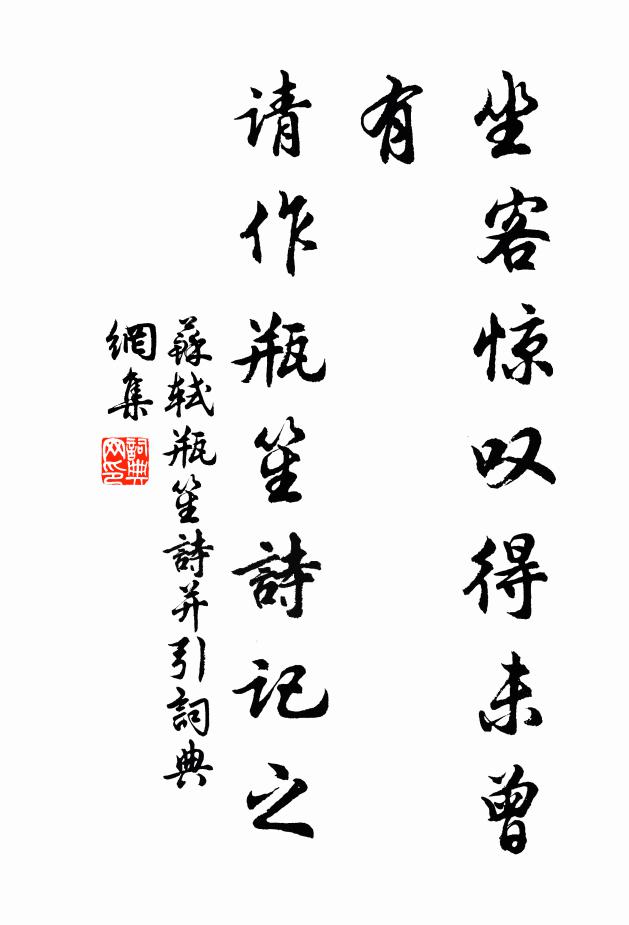 坐客惊叹得未曾
有
请作瓶笙詩记之
蘇轼瓶笙詩并引詞典
網集
詞典
网印